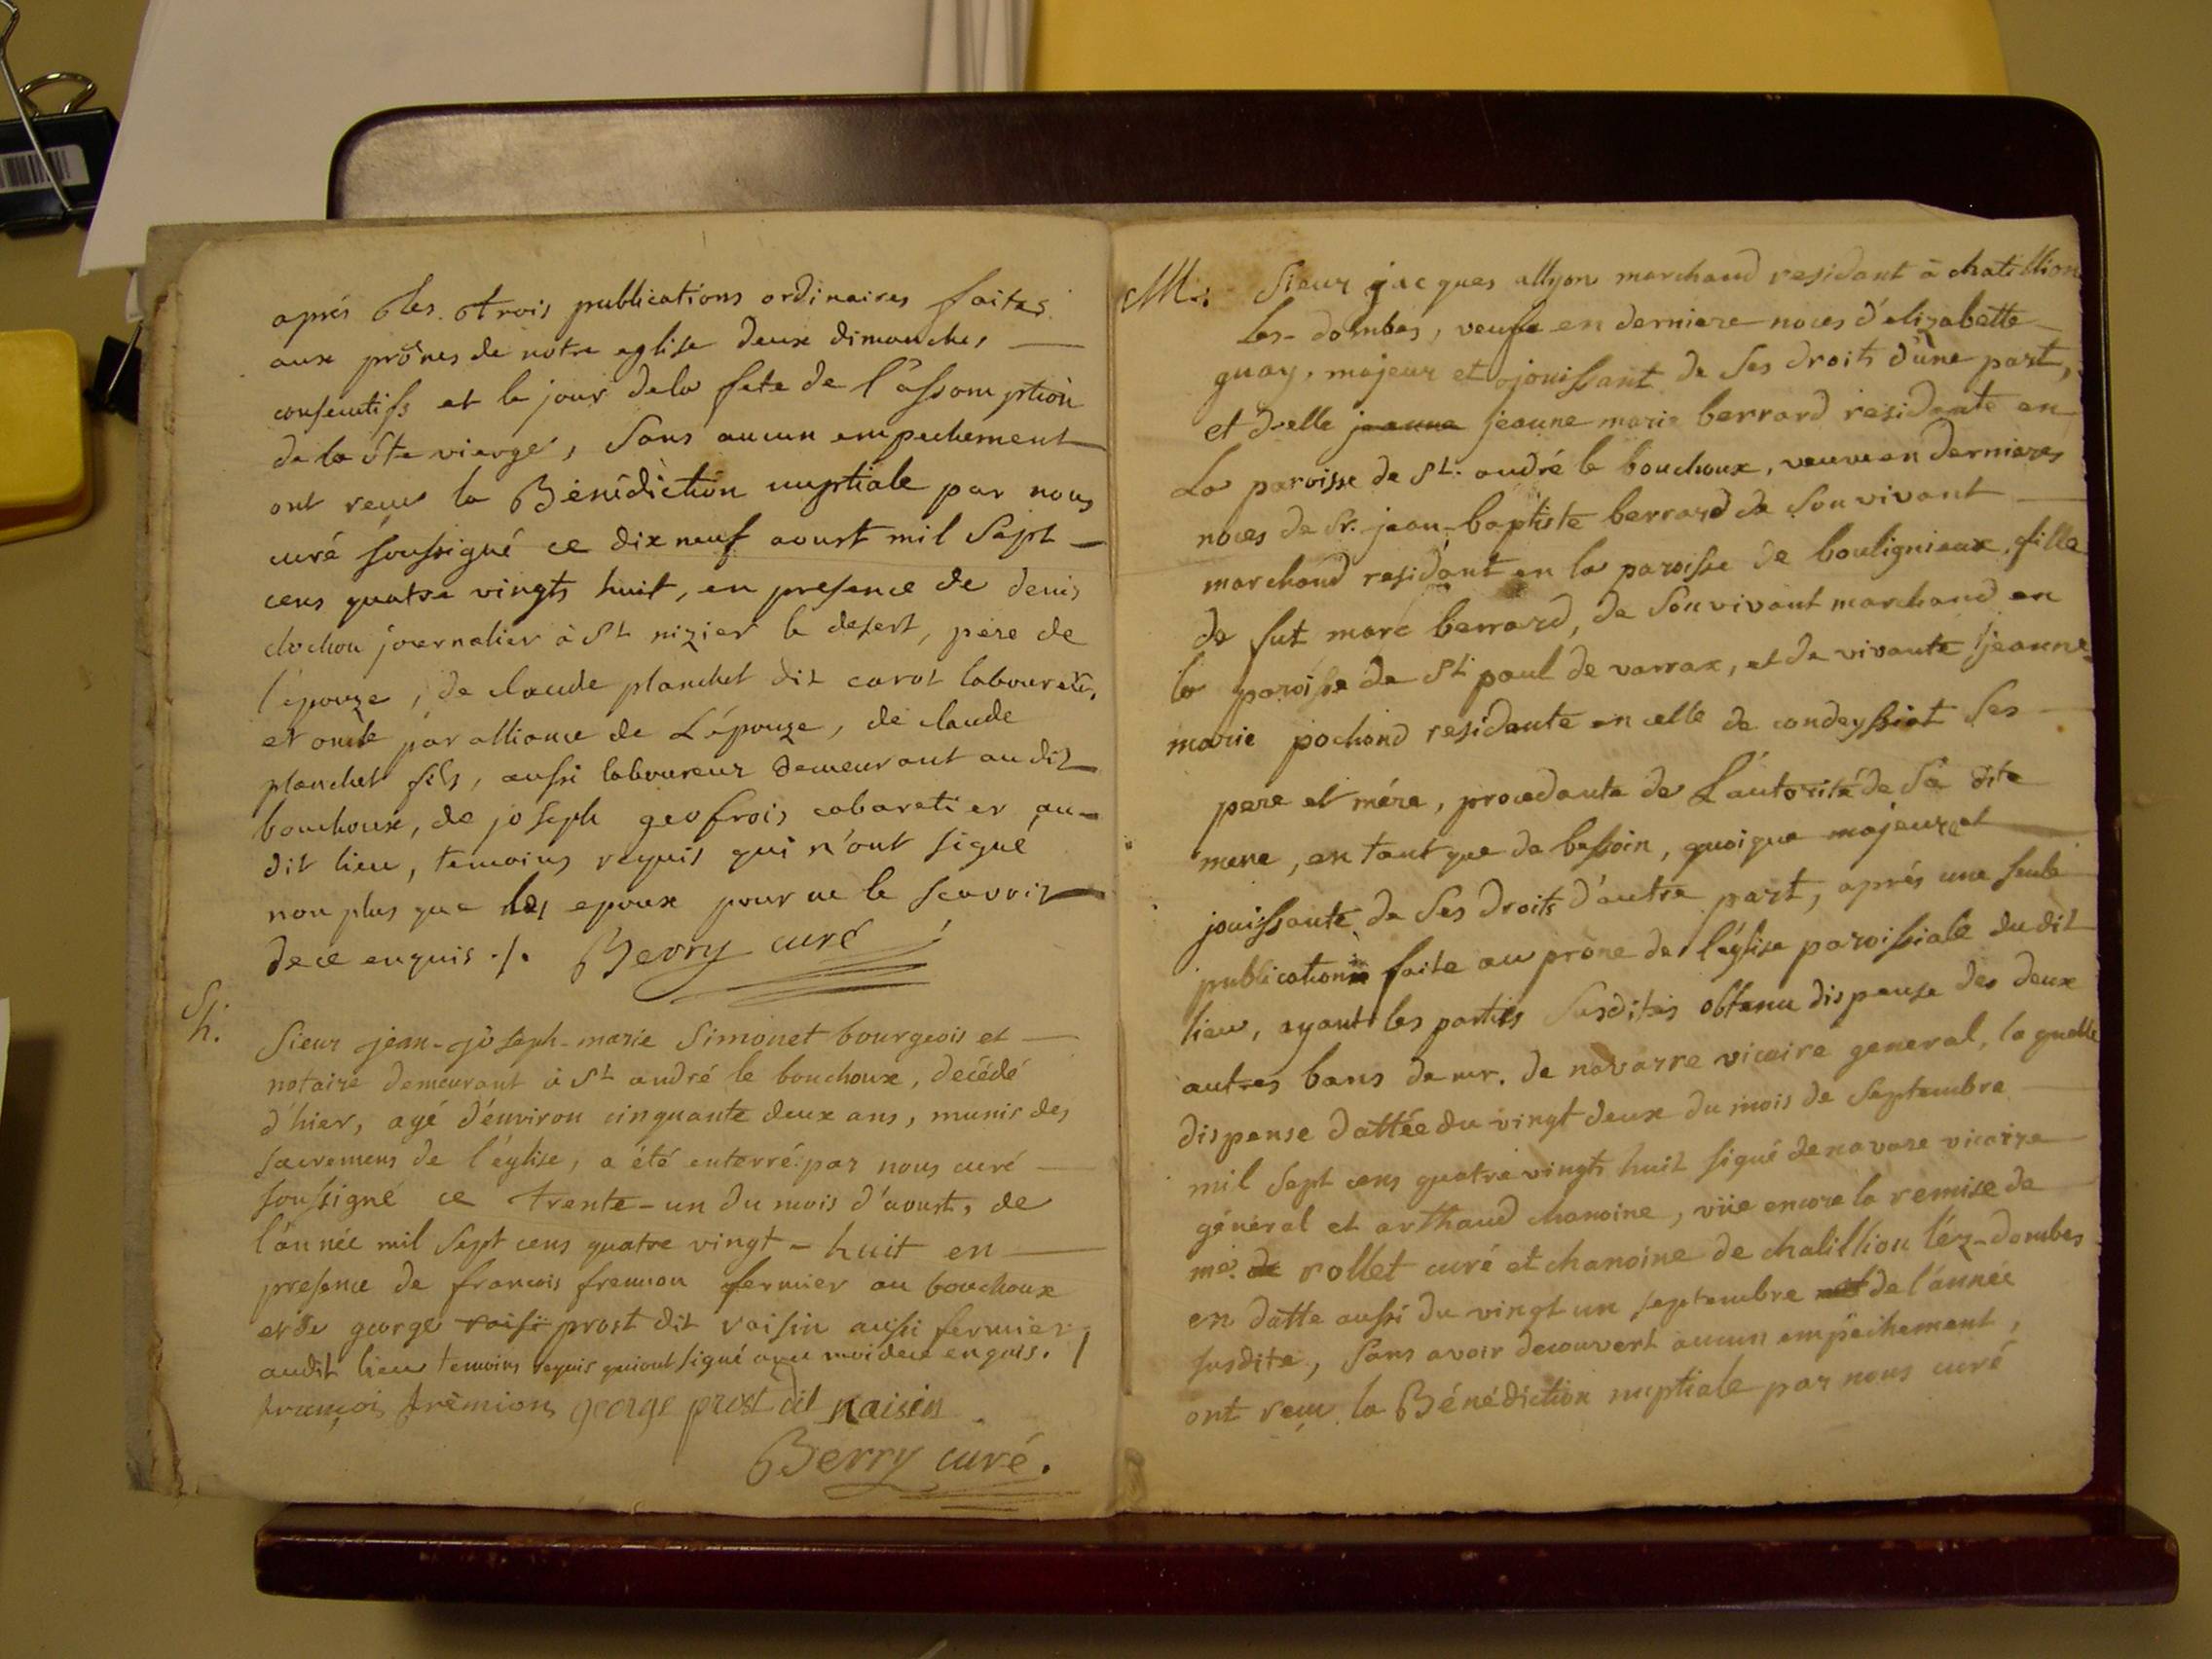 aprés les trois publications ordinaires faites
aux prônes de notre eglise deux dimanches
consecutifs et le jour dela fete de l'assomption
de la ste vierge, sans aucun empechement
ont reçu la Bénédiction nuptiale par nous
curé soussigné ce dix neuf aoust mil sept
cens quatre vingts huit, en presence de denis
clochon journalier à St nizier le desert, pere de
l'épouze, de claude planchet dit carot laboureur,
et oncle par alliance de L'épouze, de claude
planchet fils, aussi laboureur demeurant au dit
bouchoux, de joseph geofrois cabaretier au-
dit lieu, temoins requis qui n'ont signé
non plus que les epoux pour ne le scavoir
de ce enquis ./. Berry curé
Sh.
Sieur jean-joseph-marie Simonet bourgeois et
notaire demeurant à St andré le bouchoux, decédé
d'hier, agé d'environ cinquante deux ans, munis des
sacremens de l'église, a été enterré par nous curé
soussigné ce trente-un du mois d'aoust, de
l'année mil sept cens quatre vingt-huit en
presence de francois fremion fermier au bouchoux
et de george raisi prost dit raisin aussi fermier
audit lieu temoins requis qui ont signé avec moi de ce enquis. /
françois fremion george prost dit raisin
Berry curé.
M: Sieur jacques allyon marchand residant à chatillion
les-dombes, veufe en derniere noces d'elizabette
guay, majeur et ojouissant de ses droits d'une part,
et d-elle jeanne jeanne marie berrard residante en
La paroisse de St. andré le bouchoux, veuve en dernieres
noces de Sr. jean-baptiste berrard de son vivant
marchand residant en la paroisse de boulignieux, fille
de fut marc berrard, de son vivant marchand en
la paroisse de St paul de varrax, et de vivante jeanne
marie pochond residante en celle de condeyssiat ses
pere et mére, procedante de L'autorité de sa dite
mere, en tant que de bessoin, quoique majeure et
jouissante de ses droits d'autre part, aprés une seule
publication faite au prône de l'église paroissiale du dit
lieu, ayant les parties susdites obtenu dispense des deux
autres bans de mr. de navarre vicaire general, la quelle
dispense dattée du vingt deux du mois de septembre
mil sept cens quatre vingts huit signé de navare vicaire
général et arthaud chanoine, vüe encore la remise de
me. de rollet curé et chanoine de chatillion léz-dombes
en datte aussi du vingt un septembre de l'année
susdite, sans avoir decouvert aucun empêchement,
ont reçu la Bénédiction nuptiale par nous curé